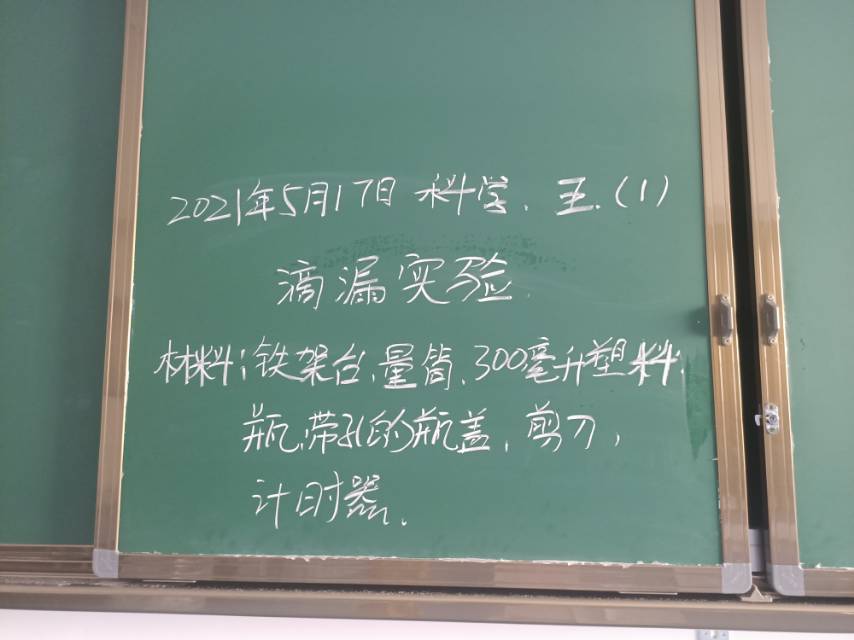 2021年5月17日 科学、五.(1)
滴漏实验.
材料:铁架台、量筒、300毫升塑料
瓶、带孔的瓶盖、剪刀,
计时器.